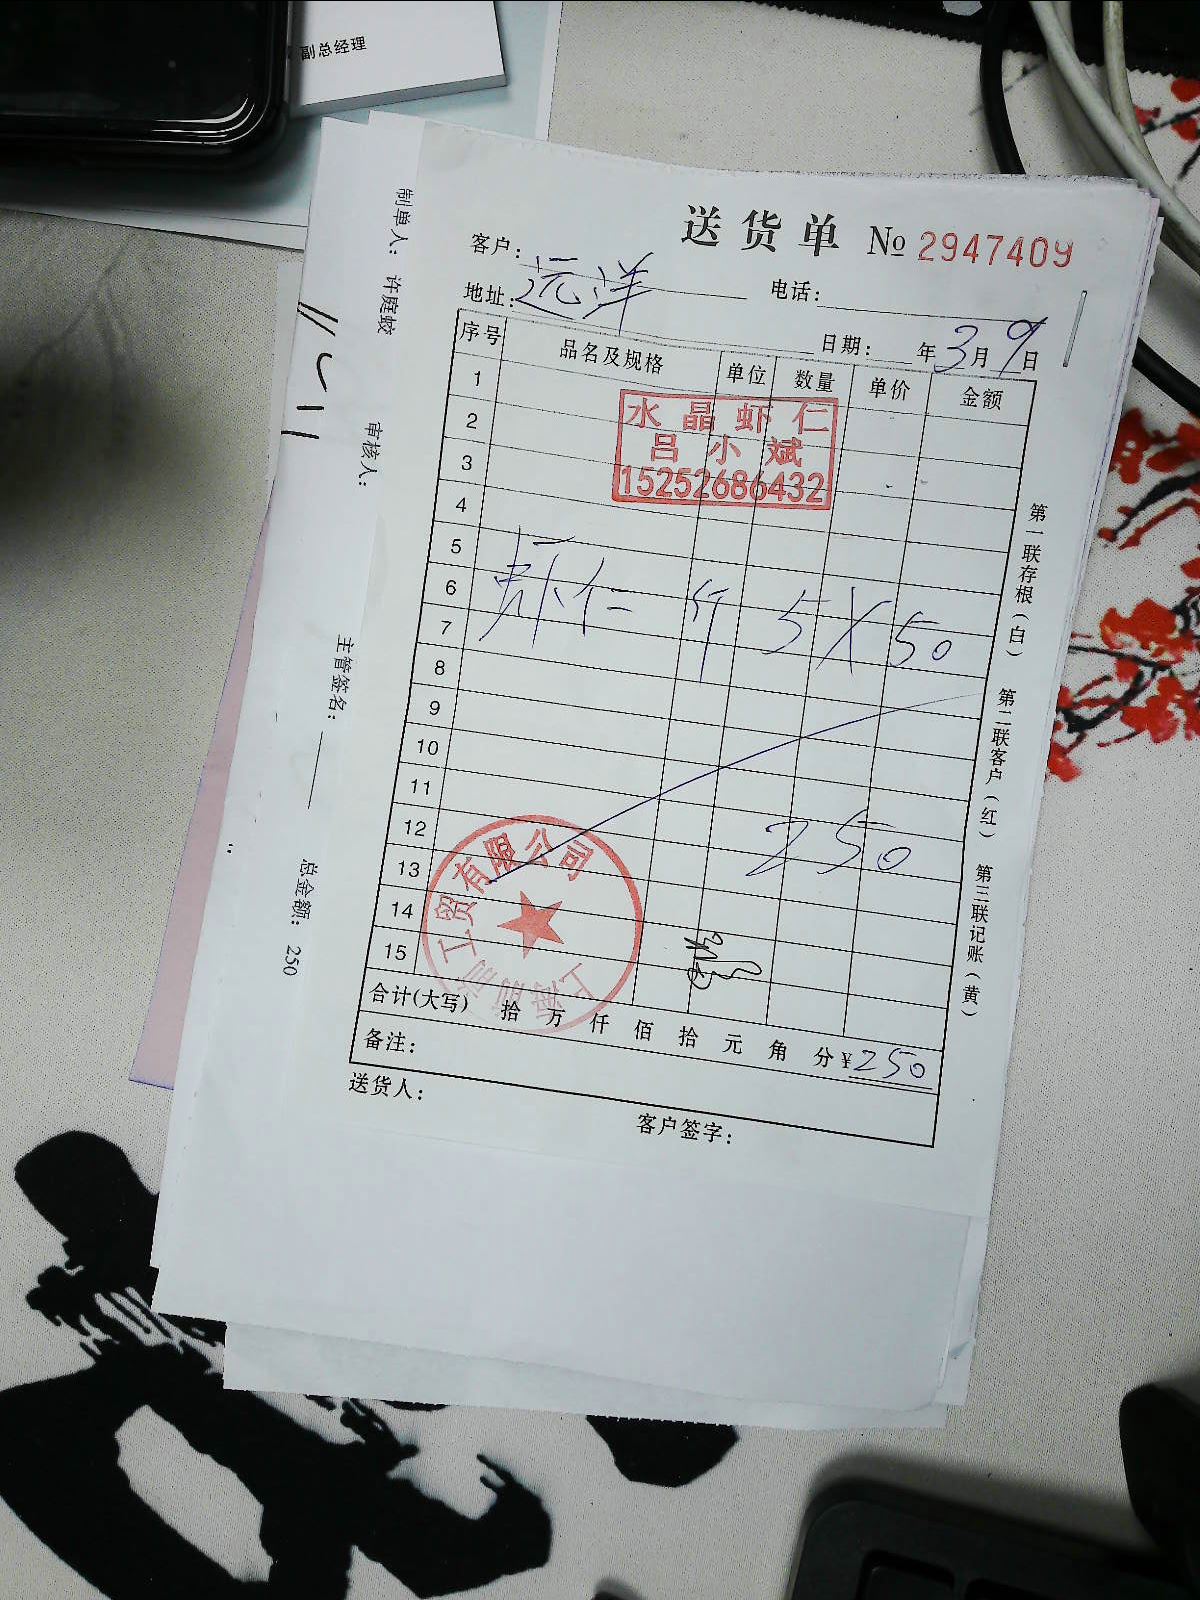 副总经理
送货单 № 2947409
客户: 远洋
电话:
地址:
日期: 年3月9日
序号 品名及规格 单位 数量 单价 金额
1
2
3
4
5
6
7
8
9
10
11
12
13
14
15
水晶虾仁
吕小斌
15252686432
虾仁 斤 5 X 50
250
工贸有限公司
上海
合计(大写) 拾 万 仟 佰 拾 元 角 分 ¥250
备注:
送货人:
客户签字:
第一联存根(白) 第二联客户(红) 第三联记账(黄)
制单人: 许庭蛟
审核人:
主管签名:
总金额: 250